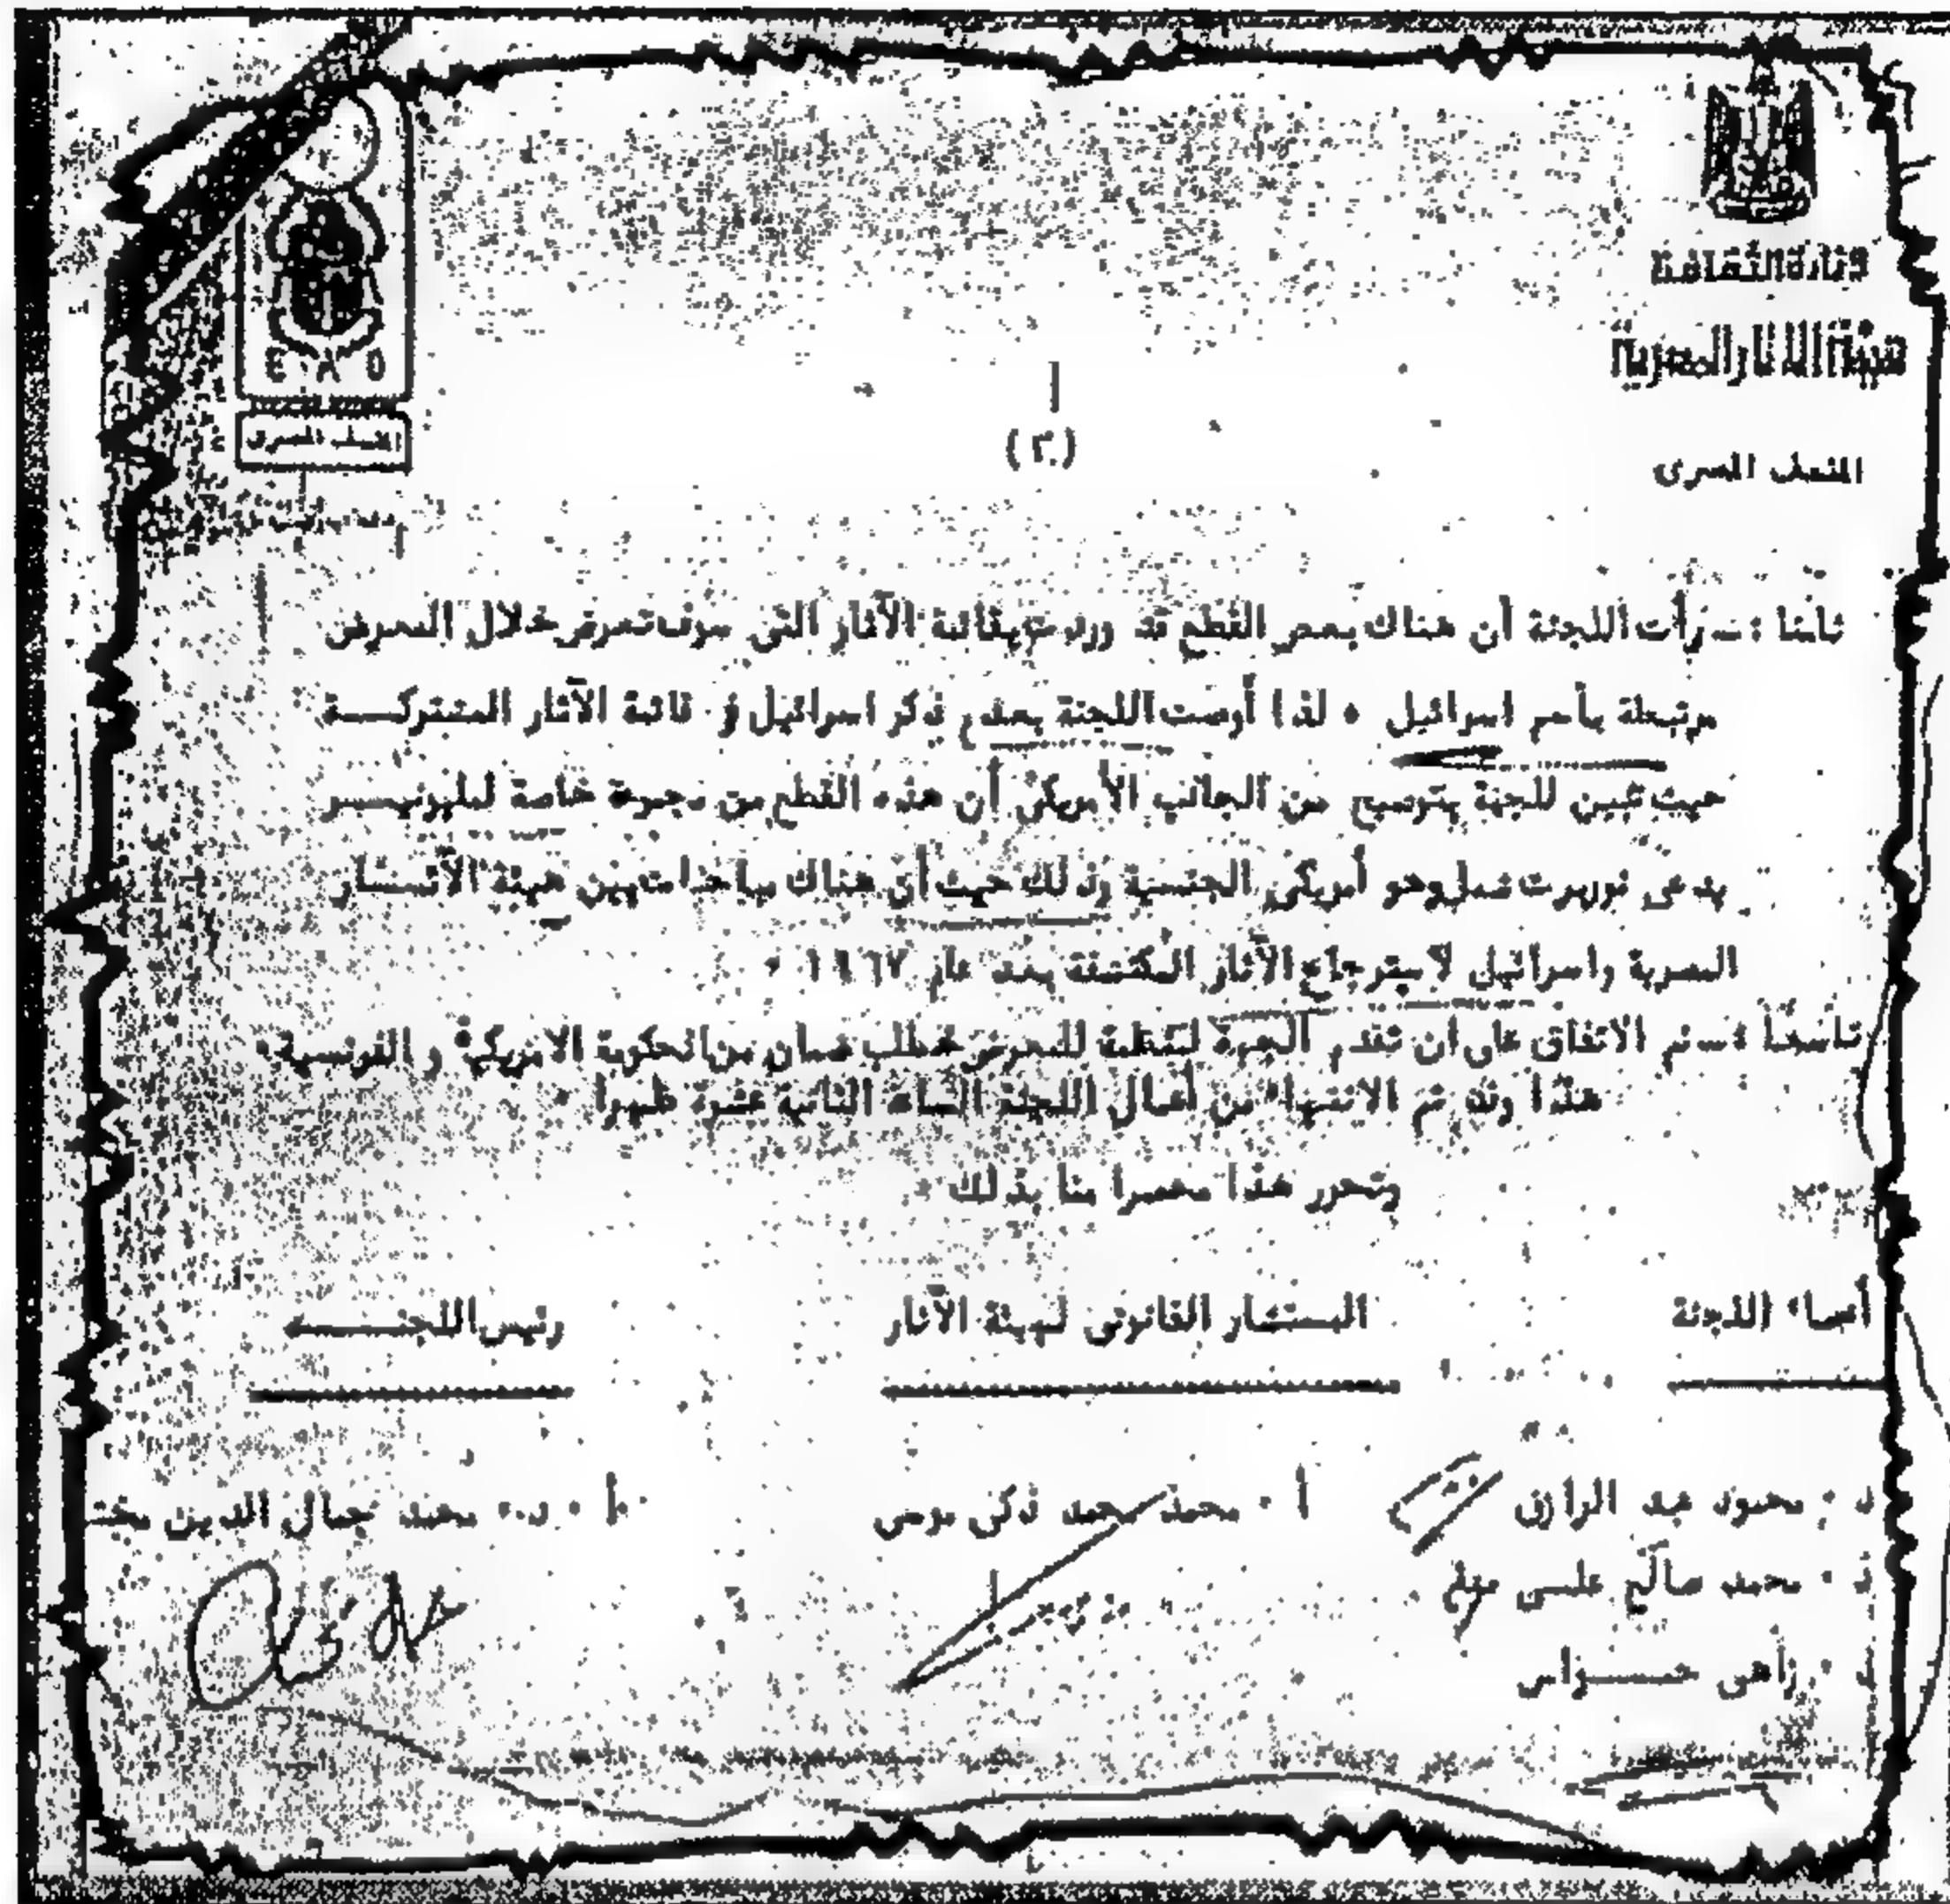 وزارة الثقافة
هيئة الآثار المصرية
المتحف المصرى
E A O
المتحف المصرى
(٣)
ثامنا : - رأت اللجنة أن هناك بعض القطع قد وردت بقائمة الآثار التى سوف تعرض خلال المعرض
مرتبطة بأسم اسرائيل ٠ لذا أوصت اللجنة بعدم ذكر اسرائيل فى قائمة الآثار المشتركـــة
حيث تبين للجنة بتوضيح من الجانب الأمريكى أن هذه القطع من مجموعة خاصة لمليونيـــر
يدعى نوربرت شمل وهو أمريكى الجنسية وذلك حيث أن هناك مباحثات بين هيئة الآثـــار
المصرية واسرائيل لاسترجاع الآثار المكتشفة بعد عام ١٩٦٧ ٠
تاسعا : - تم الاتفاق على أن تقدم الجهة المنظمة للمعرض بطلب ضمان من الحكومة الامريكية و الفرنسية ٠
هذا وقد تم الانتهاء من أعمال اللجنة الساعة الثانية عشرة ظهرا ٠
وتحرر هذا محضرا منا بذلك ٠
أعضاء اللجنة
المستشار القانونى لهيئة الآثار
رئيس اللجنـــة
د ٠ محمود عبد الرازق
أ ٠ محمد محمد زكى موسى
أ ٠ د ٠ محمد جمال الدين مختـ
د ٠ محمد صالح علـى
د ٠ زاهى حـــواس